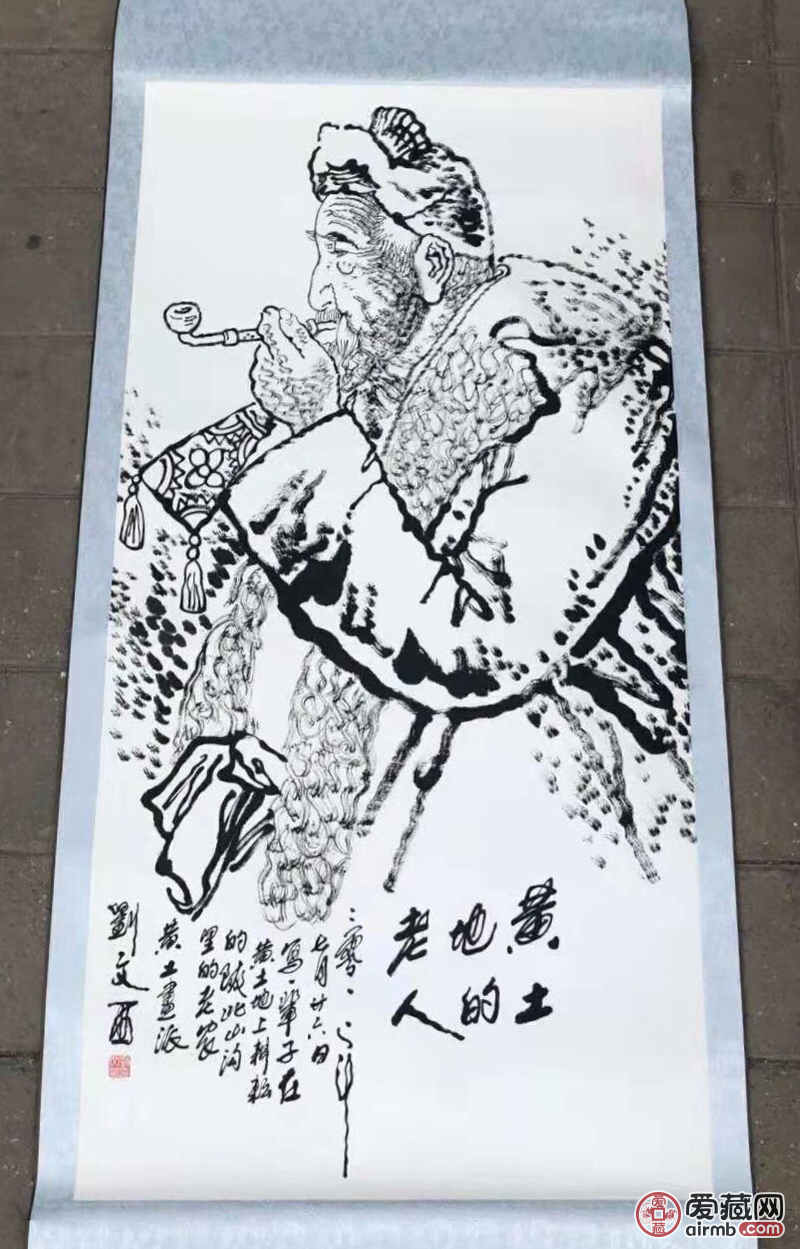 黄土
地的
老人
二零一〇年
七月廿六日
写一辈子在
黄土地上耕耘
的陕北山沟
里的老农
黄土畫派
劉文西
爱藏网
airmb.com